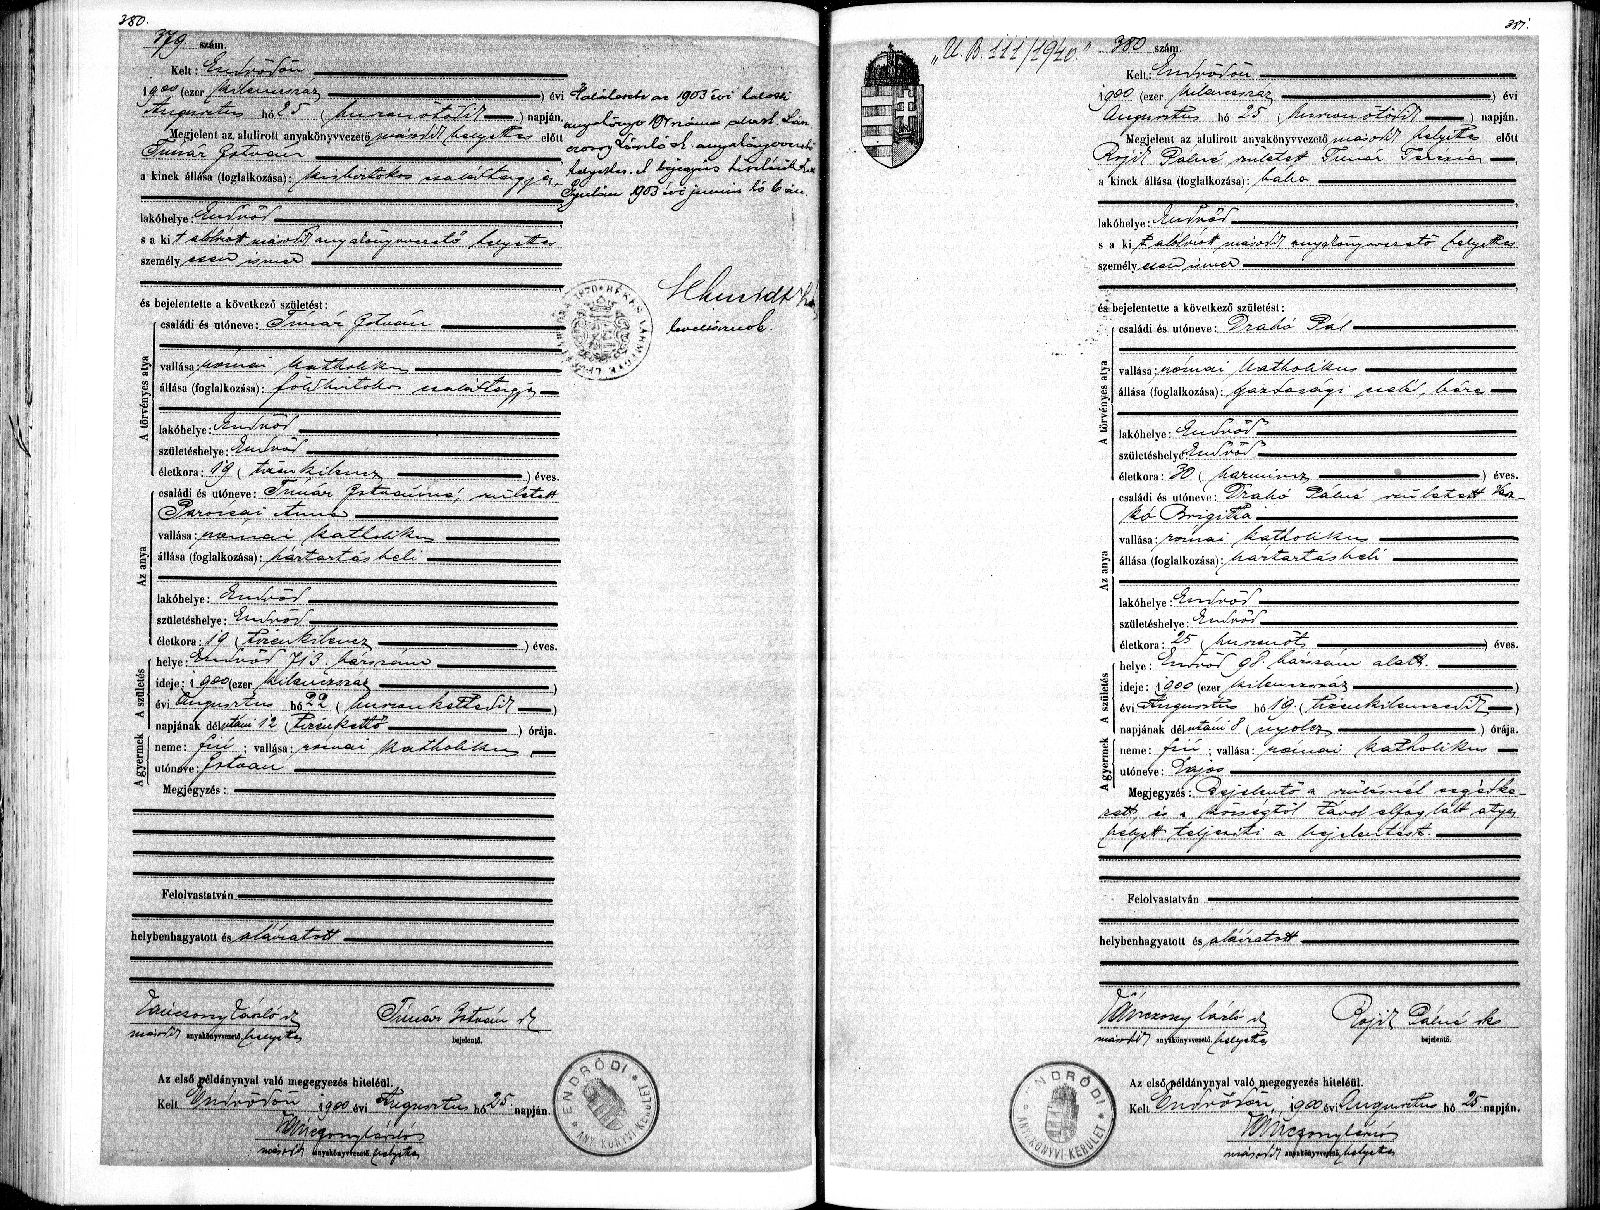 380.
379 szám.
Kelt: Endrődön
1900 (ezer kilenczszáz ) évi
Augusztus hó 25 ( huszonötödik ) napján.
Megjelent az alulirott anyakönyvvezető második helyettes előtt
Timár István
a kinek állása (foglalkozása): kisbirtokos családtagja,
lakóhelye: Endrőd
s a kit alólirott második anyakönyvvezető helyettes
személyesen ismer
és bejelentette a következő születést:
A törvényes atya
családi és utóneve: Timár István
vallása: római katholikus
állása (foglalkozása): földbirtokos családtagja
lakóhelye: Endrőd
születéshelye: Endrőd
életkora: 19 ( tizenkilencz ) éves.
Az anya
családi és utóneve: Timár Istvánné, született
Parocsai Anna
vallása: római katholikus
állása (foglalkozása): háztartásbeli
lakóhelye: Endrőd
születéshelye: Endrőd
életkora: 19 ( tizenkilencz ) éves.
A születés
helye: Endrőd 713 házszám
ideje: 1900 (ezer kilenczszáz )
évi Augusztus hó 22 ( huszonkettedik )
napjának délutáni 12 ( tizenkettő ) órája.
A gyermek
neme: fiú ; vallása: római katholikus
utóneve: István
Megjegyzés:
Felolvastatván
helybenhagyatott és aláiratott
Vánczony László sk
második anyakönyvvezető. helyettes
Timár István sk
bejelentő.
Az első példánynyal való megegyezés hiteléül.
Kelt Endrődön, 1900 évi Augusztus hó 25 napján.
Vánczony László
második anyakönyvvezető. helyettes
ENDRŐDI * ANYAKÖNYVI KERÜLET *
az 1903 évi
László sk. anyakönyvvezető
helyettes. A bejegyzés hiteléül
Gyulán 1903 évi junius hó 6 án.
Schmidt
levéltárnok.
381.
„U. B. 111/1940."
380 szám.
Kelt: Endrődön
1900 (ezer kilenczszáz ) évi
Augusztus hó 25 ( huszonötödik ) napján.
Megjelent az alulirott anyakönyvvezető második helyettes előtt
Rojik Pálné született Timár Terézia,
a kinek állása (foglalkozása): bába
lakóhelye: Endrőd
s a kit alólirott második anyakönyvvezető helyettes
személyesen ismer
és bejelentette a következő születést:
A törvényes atya
családi és utóneve: Drahó Pál
vallása: római katholikus
állása (foglalkozása): gazdasági cseléd, béres
lakóhelye: Endrőd
születéshelye: Endrőd
életkora: 30 ( harmincz ) éves.
Az anya
családi és utóneve: Drahó Pálné született
Brigitta
vallása: római katholikus
állása (foglalkozása): háztartásbeli
lakóhelye: Endrőd
születéshelye: Endrőd
életkora: 25 ( huszonöt ) éves.
A születés
helye: Endrőd 98 házszám alatt.
ideje: 1900 (ezer kilenczszáz )
évi Augusztus hó 19 ( tizenkilenczedik )
napjának délutáni 8 ( nyolcz ) órája.
A gyermek
neme: fiú ; vallása: római katholikus
utóneve: Lajos
Megjegyzés: Bejelentő a szülésnél segédke-
zett, és a községtől távol elfoglalt atya
helyett teljesiti a bejelentést.
Felolvastatván
helybenhagyatott és aláiratott
Vánczony László sk
második anyakönyvvezető. helyettes
Rojik Pálné sk
bejelentő.
Az első példánynyal való megegyezés hiteléül.
Kelt Endrődön, 1900 évi Augusztus hó 25 napján.
Vánczony László
második anyakönyvvezető. helyettes
ENDRŐDI * ANYAKÖNYVI KERÜLET *